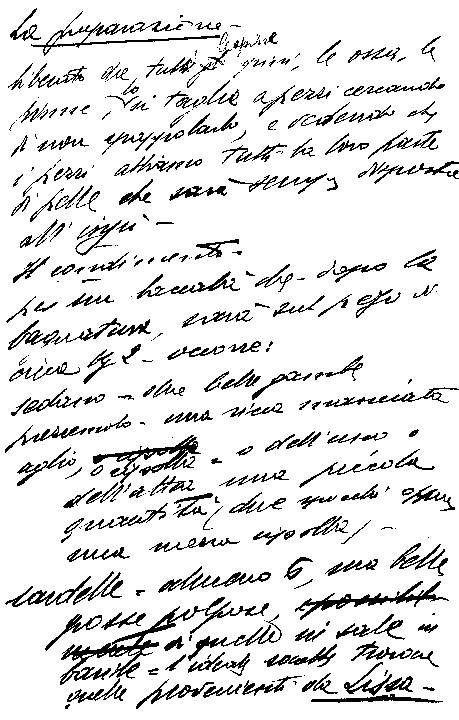 La preparazione -
liberato che, tutti gli spini, le ossa, le
pinne, lo si taglia a pezzi cercando
di non spappolarlo, e vedendo che
i pezzi abbiano tutti la loro parte
di pelle che sarà sempre disposta
all'ingiù -
Il condimento -
per un baccalà che - dopo la
bagnatura, sarà sul peso di
circa kg 2 - occorre:
sedano - due belle gambe
prezzemolo - una ricca manciata
aglio, o cipolla - o dell'uno o
dell'altra una piccola
quantità (due spicchi oppure
una mezza cipolla) -
sardelle - almeno 6, ma belle
grosse polpose,
di quelle in sale in
barile - l'ideale sarebbe trovare
quelle provenienti da Lissa -